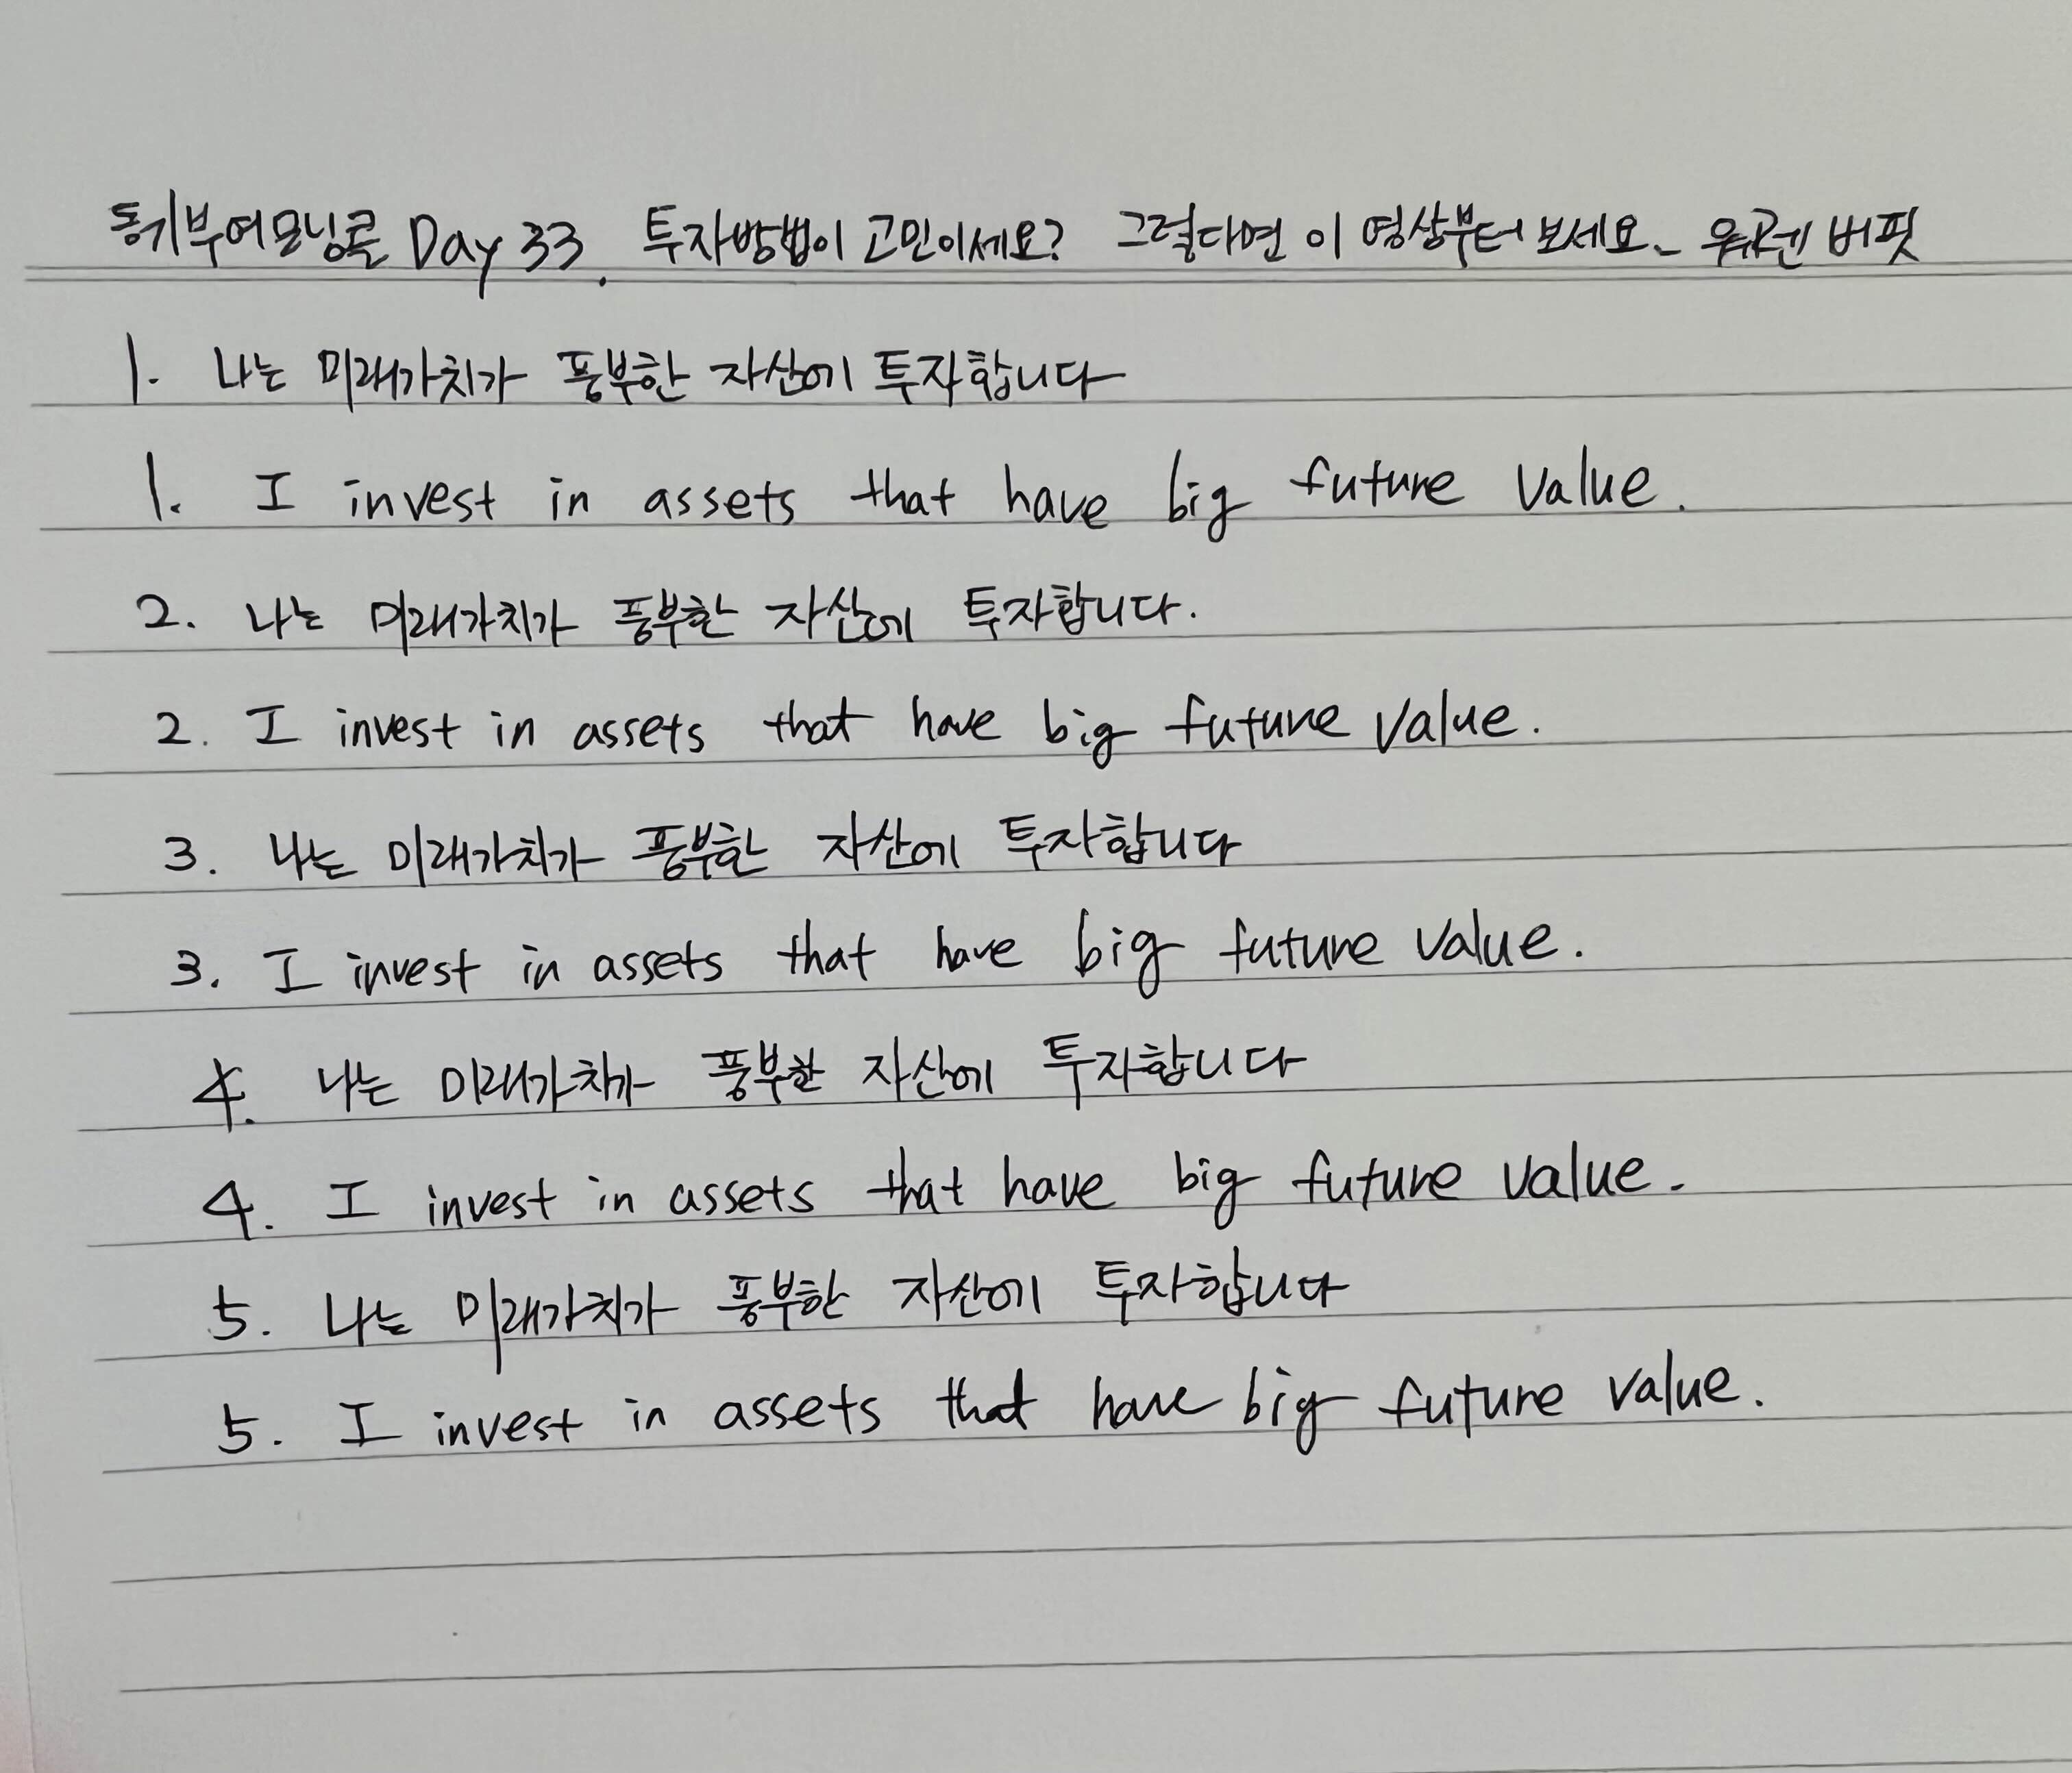 동기부여모닝콜 Day 33. 투자방법이 고민이세요? 그렇다면 이 영상부터 보세요_ 워렌 버핏
1. 나는 미래가치가 풍부한 자산에 투자합니다
1. I invest in assets that have big future value.
2. 나는 미래가치가 풍부한 자산에 투자합니다.
2. I invest in assets that have big future value.
3. 나는 미래가치가 풍부한 자산에 투자합니다
3. I invest in assets that have big future value.
4. 나는 미래가치가 풍부한 자산에 투자합니다
4. I invest in assets that have big future value.
5. 나는 미래가치가 풍부한 자산에 투자합니다
5. I invest in assets that have big future value.